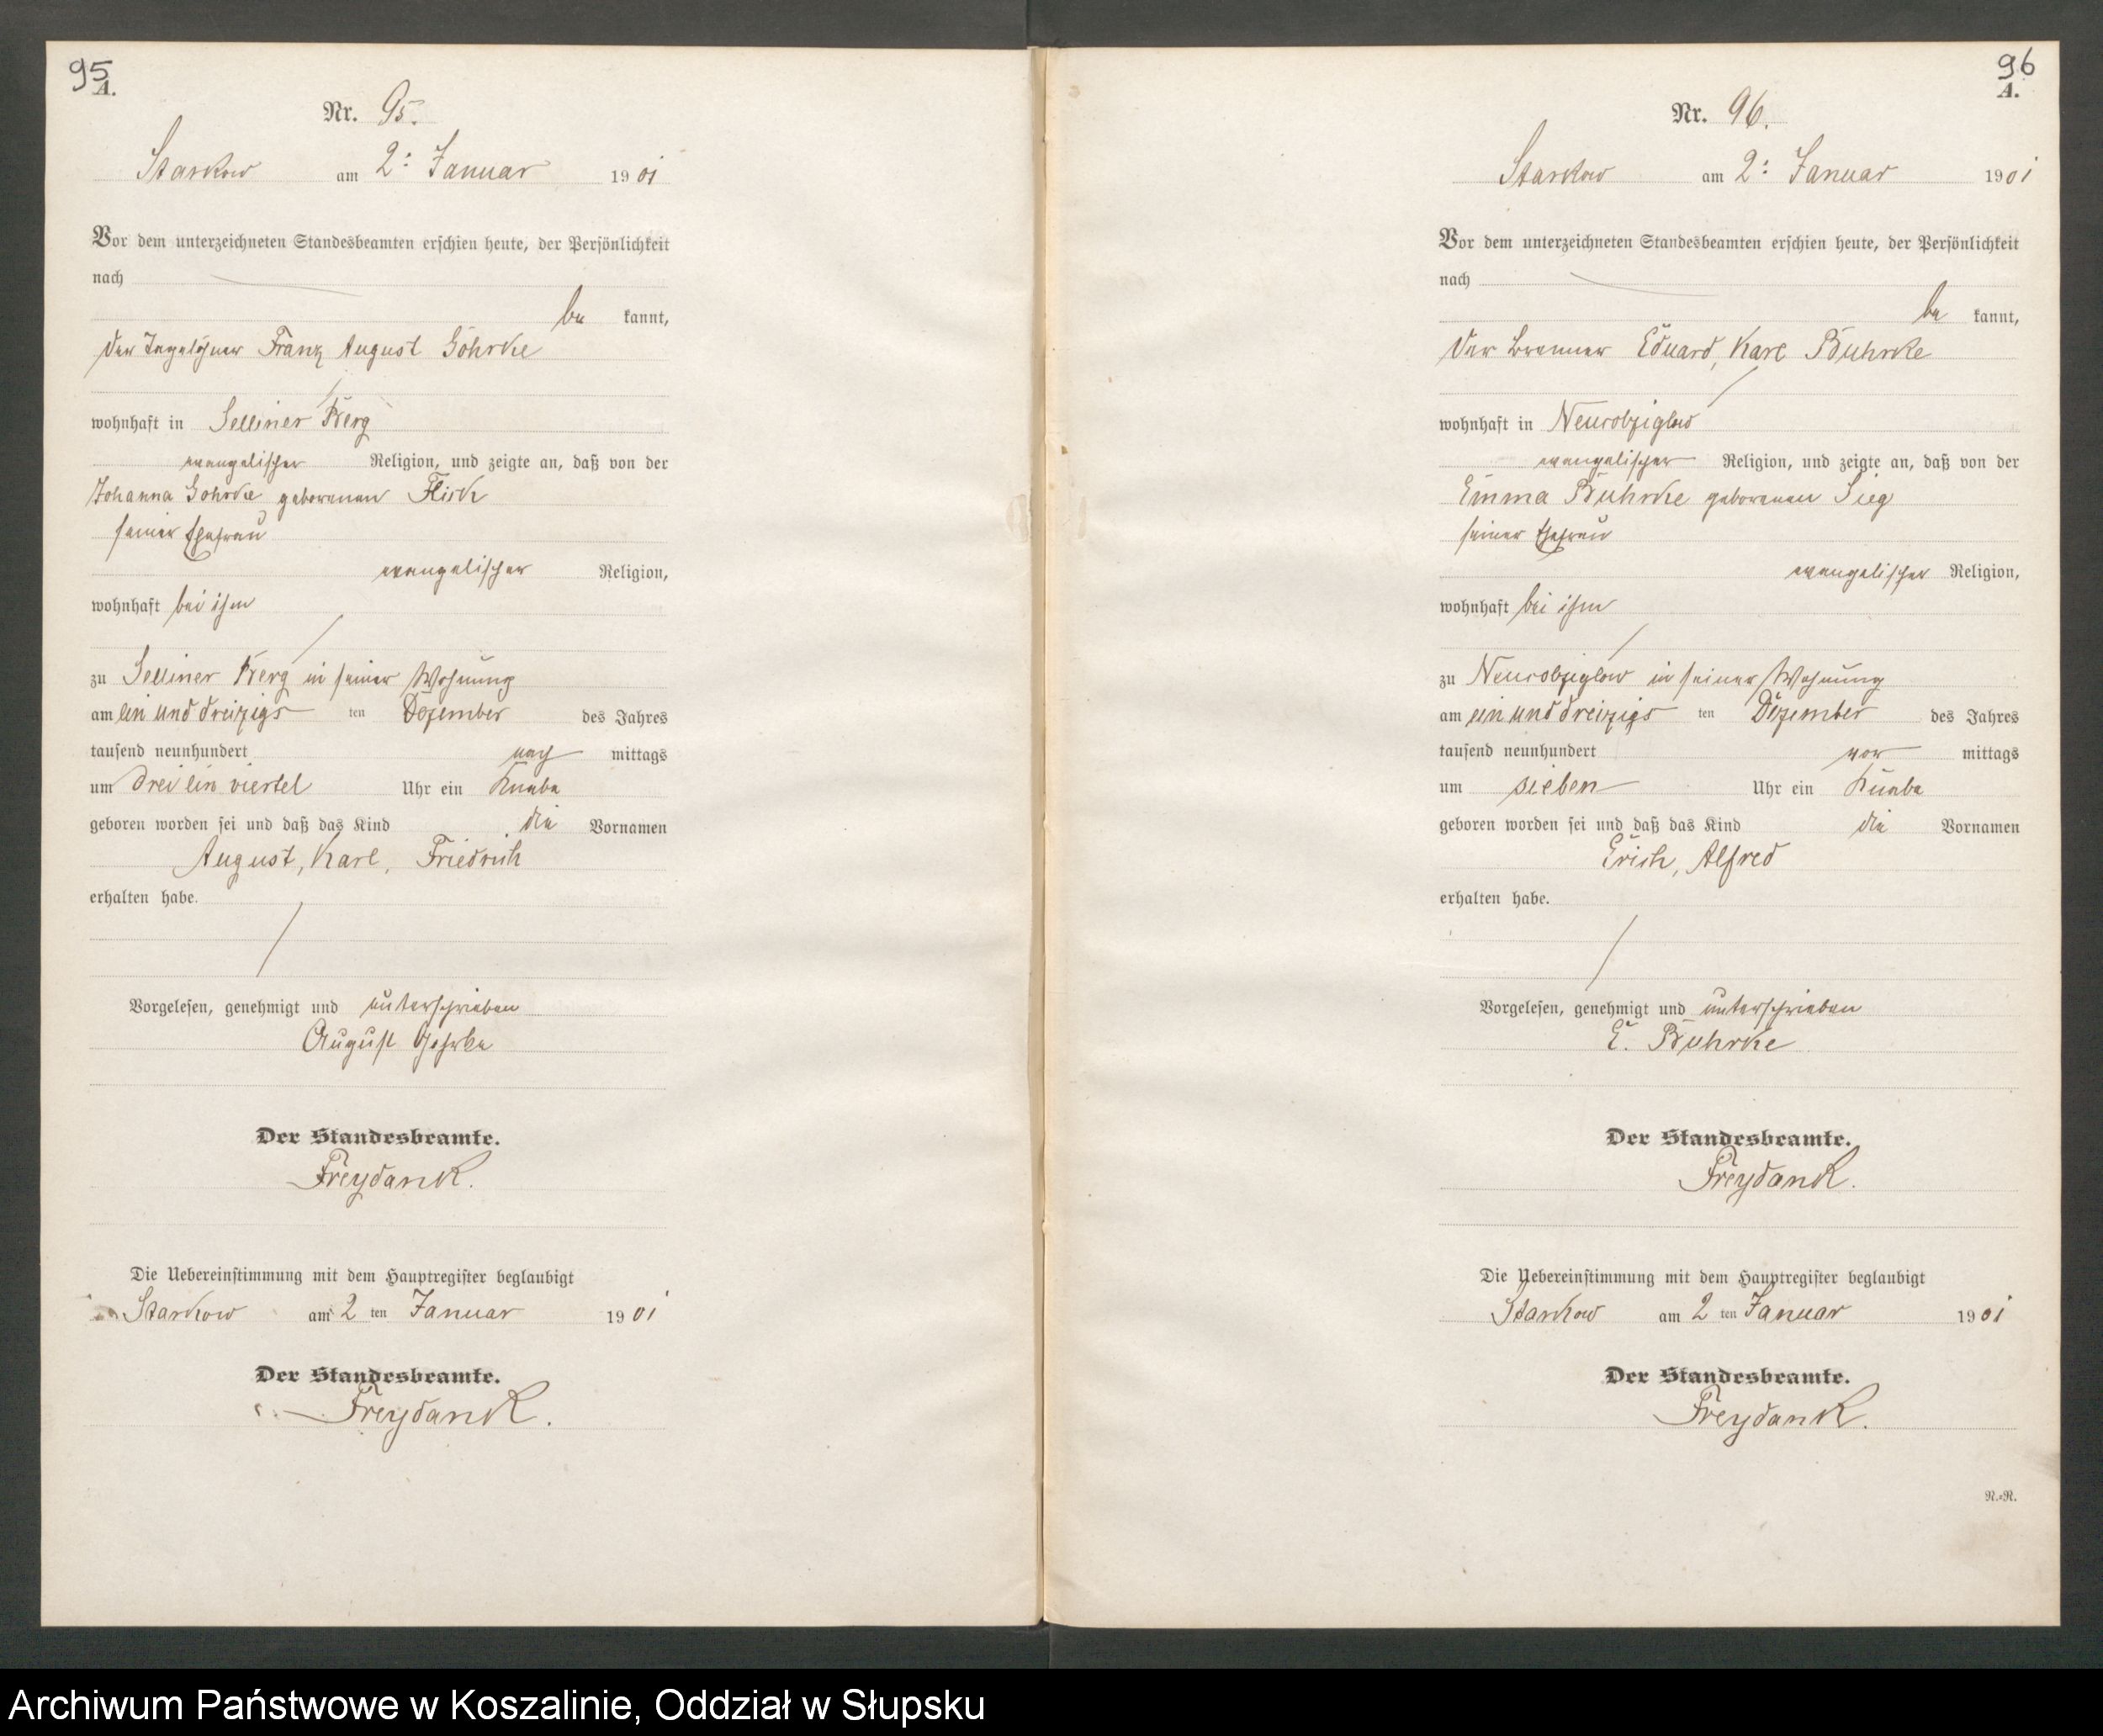 95
A.
Nr. 95.
Starkow am 2: Januar 1901
Vor dem unterzeichneten Standesbeamten erschien heute, der Persönlichkeit
nach
be kannt,
der Tagelöhner Franz August Göhrke
wohnhaft in Selliner Berg
evangelischer Religion, und zeigte an, daß von der
Johanna Göhrke geborenen Flick
seiner Ehefrau
evangelischer Religion,
wohnhaft bei ihm
zu Selliner Berg in seiner Wohnung
am ein und dreizigs ten Dezember des Jahres
tausend neunhundert nach mittags
um drei ein viertel Uhr ein Knabe
geboren worden sei und daß das Kind die Vornamen
August, Karl, Friedrich
erhalten habe.
Vorgelesen, genehmigt und unterschrieben
August Gohrke
Der Standesbeamte.
Freydank.
Die Uebereinstimmung mit dem Hauptregister beglaubigt
Starkow am 2 ten Januar 1901
Der Standesbeamte.
Freydank.
96
A.
Nr. 96.
Starkow am 2: Januar 1901
Vor dem unterzeichneten Standesbeamten erschien heute, der Persönlichkeit
nach
be kannt,
der Brenner Eduard, Karl Buhrke
wohnhaft in Neurobziglow
evangelischer Religion, und zeigte an, daß von der
Emma Buhrke geborenen Sieg
seiner Ehefrau
evangelischer Religion,
wohnhaft bei ihm
zu Neurobziglow in seiner Wohnung
am ein und dreizigs ten Dezember des Jahres
tausend neunhundert vor mittags
um sieben Uhr ein Knabe
geboren worden sei und daß das Kind die Vornamen
Erich, Alfred
erhalten habe.
Vorgelesen, genehmigt und unterschrieben
E. Buhrke
Der Standesbeamte.
Freydank.
Die Uebereinstimmung mit dem Hauptregister beglaubigt
Starkow am 2 ten Januar 1901
Der Standesbeamte.
Freydank.
R.=R.
Archiwum Państwowe w Koszalinie, Oddział w Słupsku